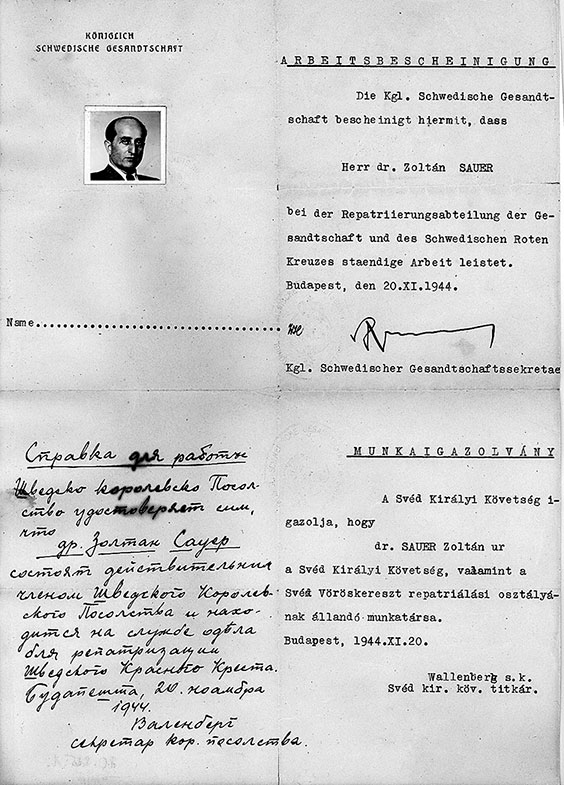 KÖNIGLICH
SCHWEDISCHE GESANDTSCHAFT
Name........................................
ARBEITSBESCHEINIGUNG
Die Kgl. Schwedische Gesandt-
schaft bescheinigt hiermit, dass
Herr dr. Zoltán SAUER
bei der Repatriierungsabteilung der Ge-
sandtschaft und des Schwedischen Roten
Kreuzes staendige Arbeit leistet.
Budapest, den 20.XI.1944.
Kgl. Schwedischer Gesandtschaftssekretae
Справка для работы
Шведско королевско Посол-
ство удостоверяет сим,
что
др. Золтан Сауер
состоят действительним
членом Шведского Королев-
ского Посолства и нахо-
дится на службе одѣла
для репатризации
Шведского Красного Креста.
Будапешта, 20 ноамбра
1944.
Валенберг
секретар кор. посолства.
MUNKAIGAZOLVÁNY
A Svéd Királyi Követség i-
gazolja, hogy
dr. SAUER Zoltán ur
a Svéd Királyi Követség, valamint a
Svéd Vöröskereszt repatriálási osztályá-
nak állandó munkatársa.
Budapest, 1944.XI.20.
Wallenberg s.k.
Svéd kir. köv. titkár.